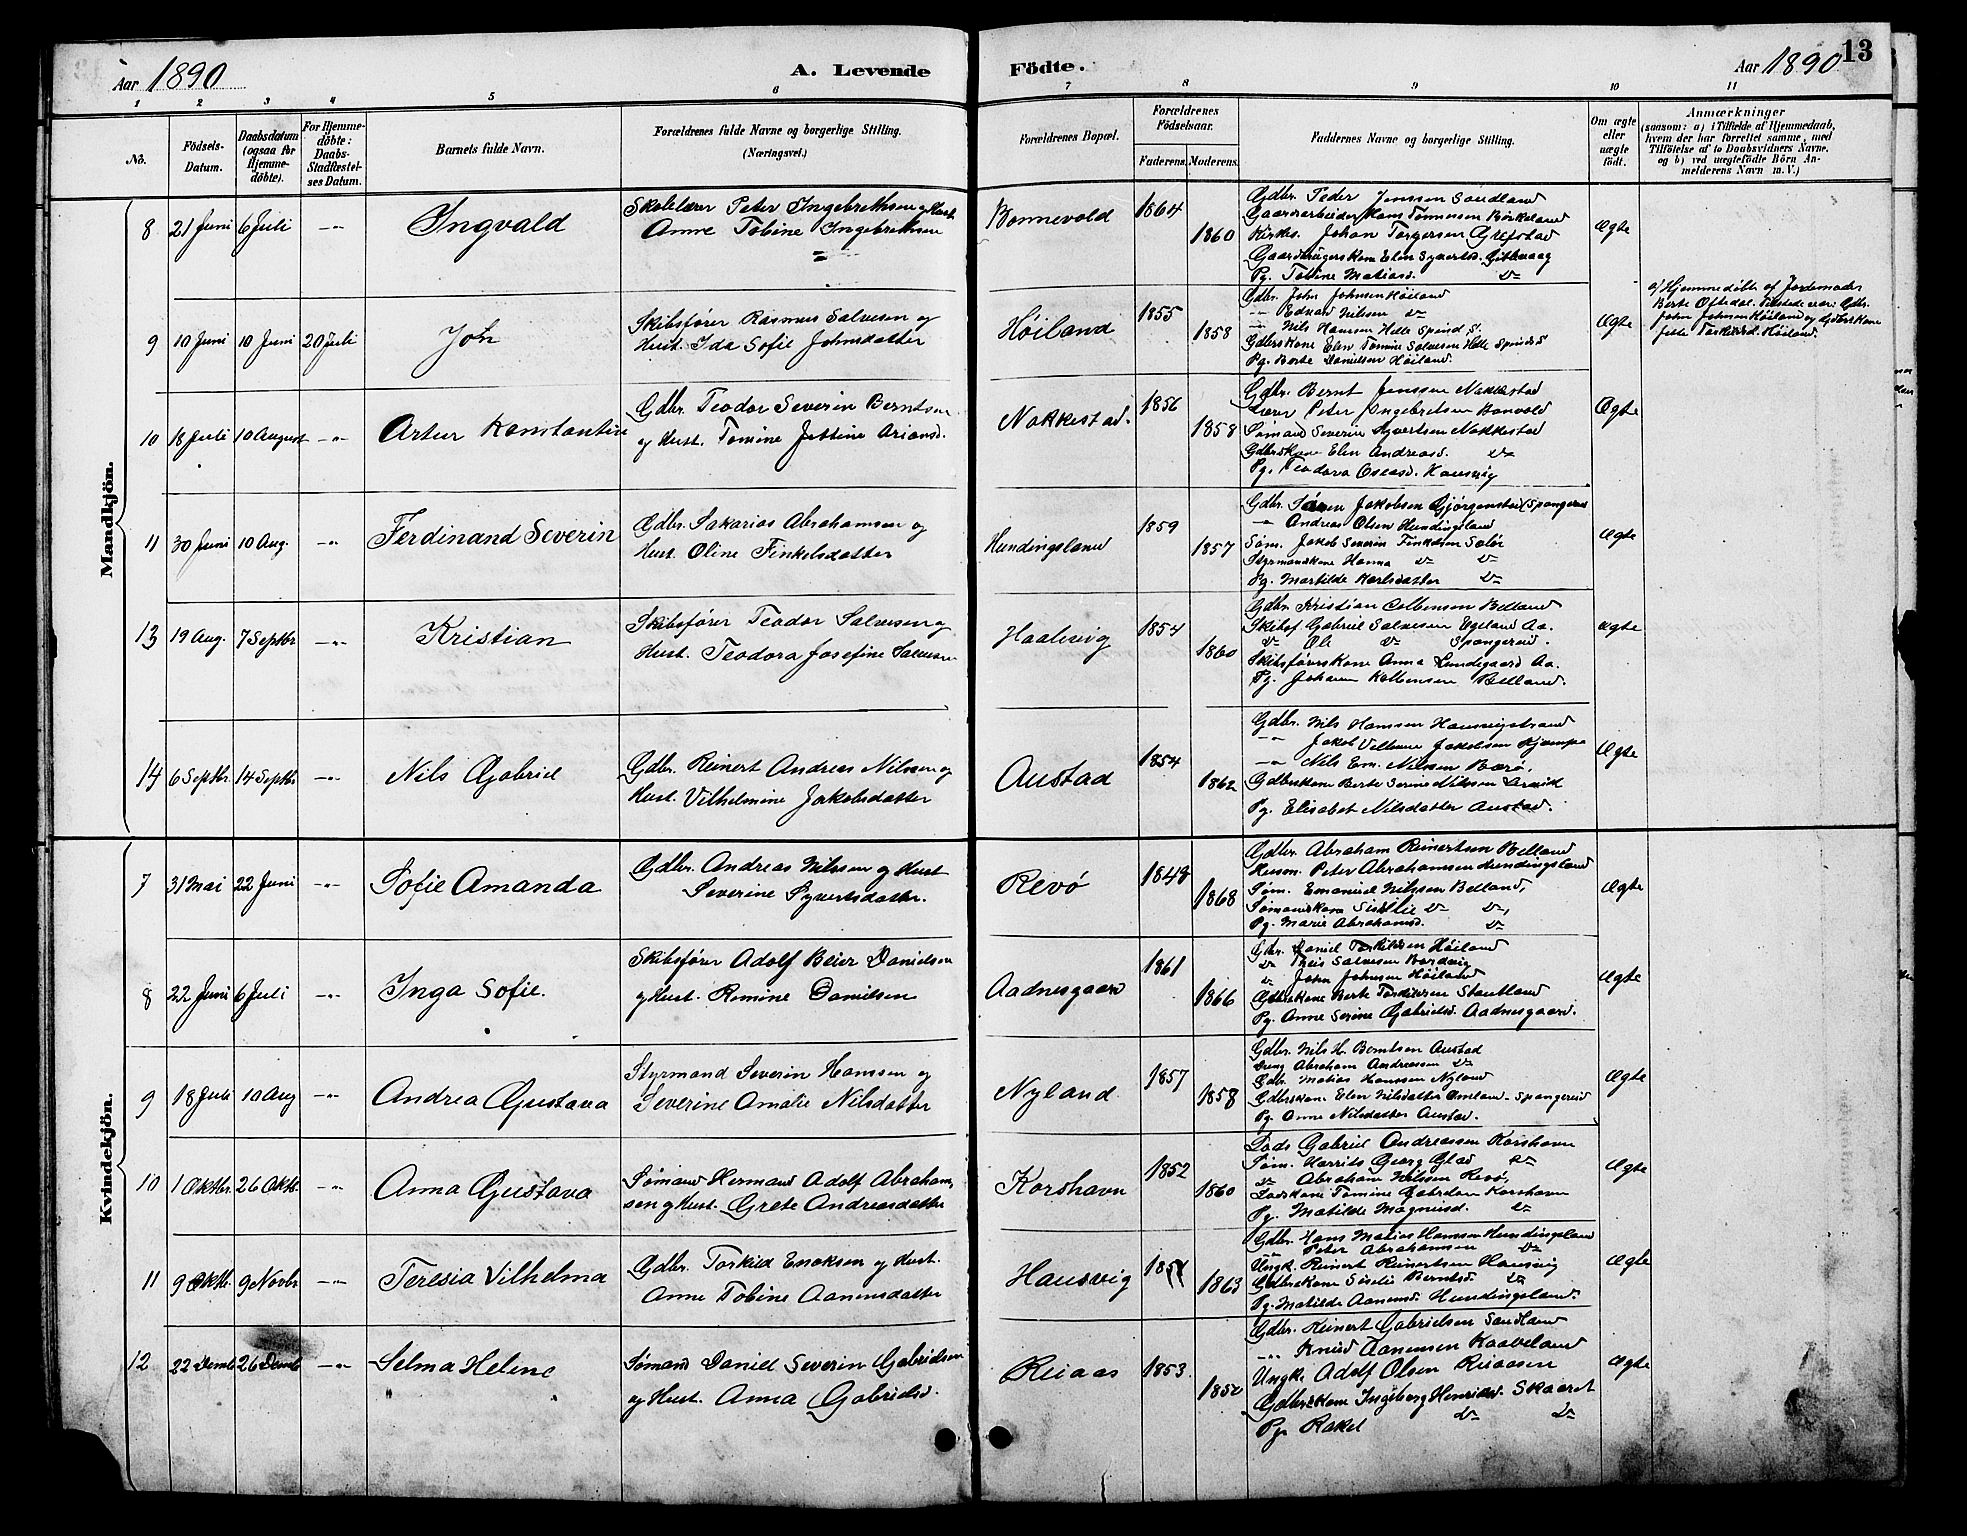 Aar 1890
A. Levende Födte.
Aar 1890
13
1 2 3 4 5 6 7 8 9 10 11
No.
Födsels-Datum.
Daabsdatum (ogsaa for Hjemme-döbte).
For Hjemme-döbte: Daabs-Stadfæstel-ses Datum.
Barnets fulde Navn.
Forældrenes fulde Navne og borgerlige Stilling.
(Næringsvei.)
Forældrenes Bopæl.
Forældrenes Födselsaar.
Faderens. Moderens.
Faddernes Navne og borgerlige Stilling.
Om ægte eller uægte födt.
Anmærkninger
(saasom: a) i Tilfælde af Hjemmedaab,
hvem der har forrettet samme, med
Tilföielse af to Daabsvidners Navne,
og b) ved uægtefödte Börn An-
melderens Navn m. V.)
Mandkjön.
8 21 Juni 6 Juli -"- Ingvald
Skolelærer Peter Ingebrethsen og Hust.
Anne Tobine Ingebrethsen
Bonnevold 1864 1860
Gdbr. Peder Jenssen Sandland
Gaardarbeider Hans Tønnesen Birkeland
Kirkes. Johan Torgersen Grefstad
Gaardbrugerskone Elen Syvertsd. Githvaag
Pg. Tobine Matiasd. do
Ægte
9 10 Juni 10 Juni 20 Juli Joh
Skibsfører Rasmus Salvesen og
Hust. Ida Sofie Johnsdatter
Høiland 1855 1858
Gdbr. John Johnsen Höiland
-"- Edvard Nilsen do
-"- Nils Hanssen Helle Spind S.
Gdbrskone Elen Tomine Salvesen Helle Spinds S
Pg. Berte Danielsen Höiland.
Ægte
a) Hjemmedöbt af Jordemoder
Berte Oftedal. Tilstede var: Gdbr.
John Johnsen Höiland og Gdbrskone
Torkildsd. Höiland.
10 18 Juli 10 August -"- Artur Konstantin
Gdbr. Teodor Severin Berntsen
og Hust. Tomine Jettine Ariansd.
Nakkestad. 1856 1858
Gdbr. Bernt Jenssen Nakkestad
Lærer Peter Ingebretsen Bonvold
Sømand Severin Syvertsen Nakkestad
Gdbrskone Elen Andreasd. do
Pg. Teodora Oseasd. Hausvig
Ægte
11 30 Juni 10 Aug. -"- Ferdinand Severin
Gdbr. Sakarias Abrahamsen og
Hust. Oline Finkelsdatter
Hundingsland 1859 1857
Gdbr. Sören Jakobsen Gjørgenstad (Spangereid
-"- Andreas Olsen Hundingsland
Søm. Jakob Severin Finkelsen Salør
Styrmandskone Hanna do do
Pg. Martilde Karlsdatter do
Ægte
13 19 Aug. 7 Septbr -"- Kristian
Skibsfører Teodor Salvesen og
Hust. Teodora Josefine Salvesen
Haalevig 1854 1860
Gdbr. Kristian Colbensen Belland
Skibsf Gabriel Salvesen Egeland Aa.
do Ole do Spangereid.
Skibsførerskone Anna Lundegaard Aa.
Pg. Johanne Kolbensen Belland.
Ægte
14 6 Septbr. 14 Septbr -"- Nils Gabriel
Gdbr. Reinert Andreas Nilssen og
Hust. Vilhelmine Jakobsdatter
Austad 1854 1862
Gdbr. Nils Hanssen Hausvigstrand
-"- Jakob Velhum Jakobsen Kjempe
-"- Nils Em. Nilssen Bærø,
Gdbrskone Berte Serine Nilssen
Pg. Elisabet Nilsdatter Austad.
Ægte
Kvindekjön.
7 31 Mai 22 Juni -"- Sofie Amanda
Gdbr. Andreas Nilssen og Hust
Severine Syvertsdatter.
Revø 1848 1868
Gdbr. Abraham Reinertsen Belland
Husm. Peter Abrahamsen Hundingsland
Søm. Emanuel Nilssen Belland,
Sømandskone Siselie do do,
Pg. Marie Abrahamsd. do
Ægte
8 22 Juni 6 Juli -"- Inga Sofie.
Skibsfører Adolf Beier Danielsen
og Hust. Romine Danielsen
Aadnesgaard 1861 1866
Gdbr. Daniel Torkildsen Höiland
do Theis Salvesen Bordvig
do John Johnsen Höiland
Gdbrskone Berte Torkildsen Stautland
Pg. Anne Serine Gabrielsd. Aadnesgaard.
Ægte
9 18 Juli 10 Aug -"- Andrea Gustava
Styrmand Severin Hanssen og
Severine Amalie Nilsdatter
Nyland 1857 1858
Gdbr. Nils H. Berntsen Austad
Abraham Andreassen do
Gdbr. Matias Hanssen Nyland
Gdbrskone Elen Nilsdatter Omland - Spangereid
Pg. Anne Nilsdatter Austad.
Ægte
10 1 Oktbr. 26 Oktbr. -"- Anna Gustava
Sømand Hermand Adolf Abraham-
sen og Hust. Grete Andreasdatter
Korshavn 1852 1860
Lods Gabriel Andreassen Korshavn
Søm. Harrits Georg Glad do
do Abraham Nilssen Revø,
Lodskone Tomine Gabrielsen Korshavn
Pg. Matilde Magnusd. do
Ægte
11 9 Oktbr. 9 Novbr -"- Teresia Vilhelma
Gdbr. Torkild Enoksen og Hust.
Anne Tobine Aanensdatter
Hausvig 1863
Gdbr. Hans Matias Hanssen Hundingsland
-"- Peter Abrahamsen do
Ungk. Reinert Reinertsen Hausvig
Gdbrskone Siselie Berntsd. do
Pg. Matilde Aanensd. Hundingsland.
Ægte
12 22 Decmb 26 Decmb -"- Selma Helene
Sømand Daniel Severin Gabrielsen
og Hust. Anna Gabrielsd.
Reiaas 1853 1852
Gdbr. Reinert Gabrielsen Sandland
-"- Knud Aanensen Kaaveland
Ungk. Adolf Olsen Reiaasen
Gdbrskone Ingeborg Henriksd. Skaaret
Pg. Rakel do do
Ægte